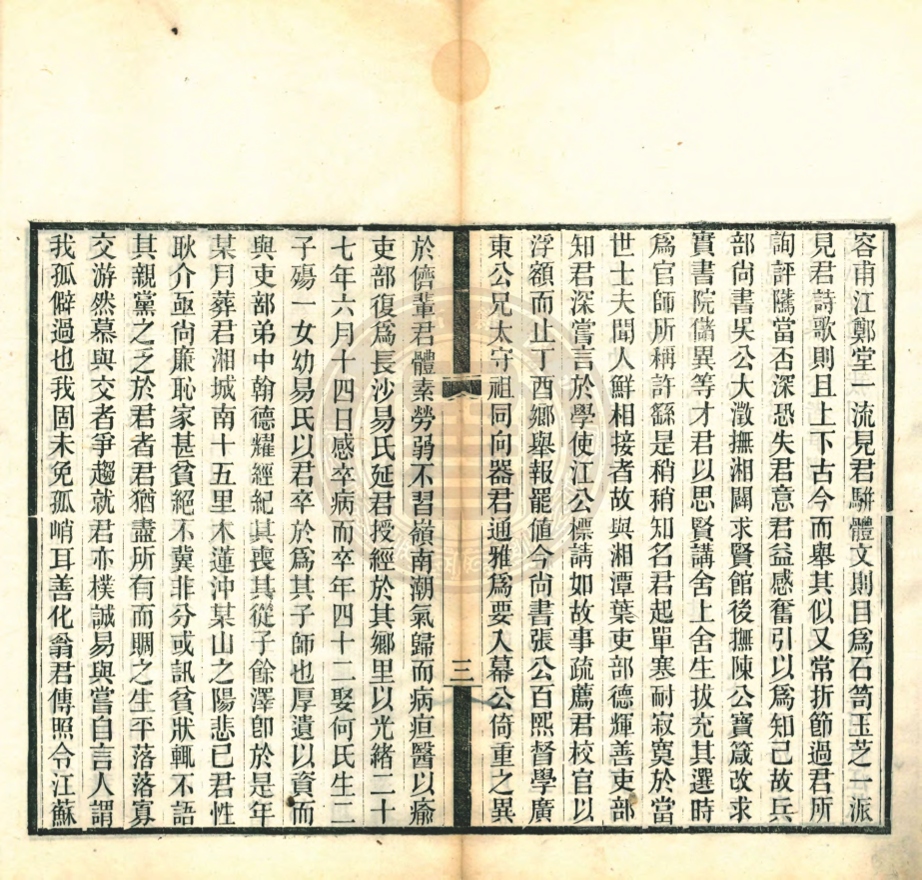 容甫江鄭堂一流見君駢體文則目爲石笥玉芝一派
見君詩歌則且上下古今而舉其似又常折節過君所
詢評隲當否深恐失君意君益感奮引以爲知己故兵
部尙書吳公大澂撫湘闢求賢館後撫陳公寶箴改求
實書院儲異等才君以思賢講舍上舍生拔充其選時
爲官師所稱許繇是稍稍知名君起單寒耐寂寞於當
世士夫聞人鮮相接者故與湘潭葉吏部德輝善吏部
知君深嘗言於學使江公標請如故事疏薦君校官以
浮額而止丁酉鄕舉報罷値今尙書張公百熙督學廣
東公兄太守祖同向器君通雅爲要入幕公倚重之異
三
於儕輩君體素勞弱不習嶺南潮氣歸而病疸醫以瘉
吏部復爲長沙易氏延君授經於其鄕里以光緖二十
七年六月十四日感卒病而卒年四十二娶何氏生二
子殤一女幼易氏以君卒於爲其子師也厚遺以資而
與吏部弟中翰德耀經紀其喪其從子餘澤卽於是年
某月葬君湘城南十五里木蓮沖某山之陽悲已君性
耿介亟尙廉恥家甚貧絕不冀非分或訊貧狀輒不語
其親黨之乏於君者君猶盡所有而賙之生平落落寡
交游然慕與交者爭趨就君亦樸誠易與嘗自言人謂
我孤僻過也我固未免孤峭耳善化翁君傳照令江蘇